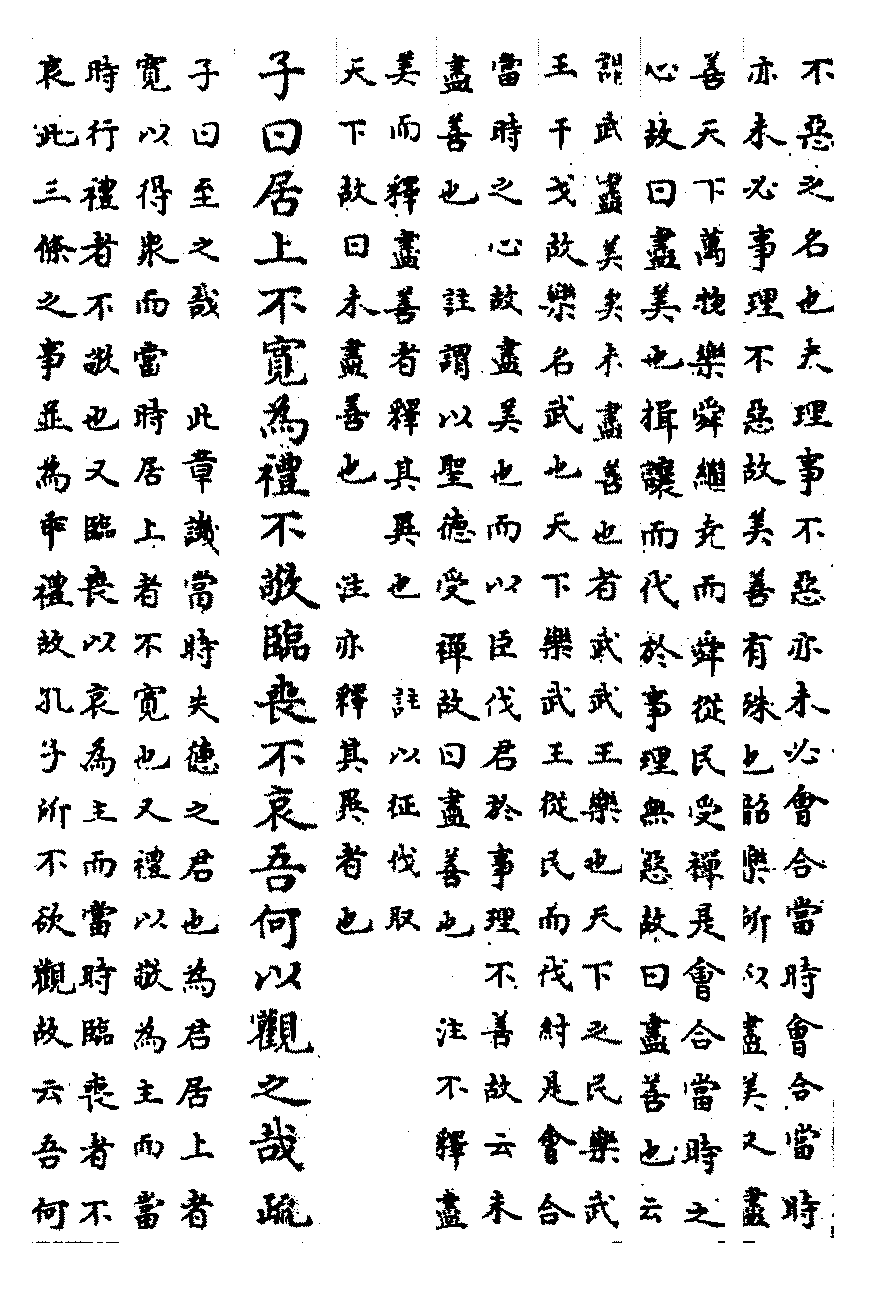 不惡之名也夫理事不惡亦未必會合當時會合當時
亦未必事理不惡故美善有殊也韶樂所以盡美又盡
善天下萬物樂舜繼堯而舜從民受禪是會合當時之
心故曰盡美也揖讓而代於事理無惡故曰盡善也云
謂武盡美矣未盡善也者武武王樂也天下之民樂武
王干戈故樂名武也天下樂武王從民而伐紂是會合
當時之心故盡美也而以臣伐君於事理不善故云未
盡善也 註謂以聖德受禪故曰盡善也 注不釋盡
美而釋盡善者釋其異也 註以征伐取
天下故曰未盡善也 注亦釋其異者也
子曰居上不寬為禮不敬臨喪不哀吾何以觀之哉疏
子曰至之哉 此章譏當時失德之君也為君居上者
寬以得衆而當時居上者不寬也又禮以敬為主而當
時行禮者不敬也又臨喪以哀為主而當時臨喪者不
哀此三條之事並為乖禮故孔子所不欲觀故云吾何